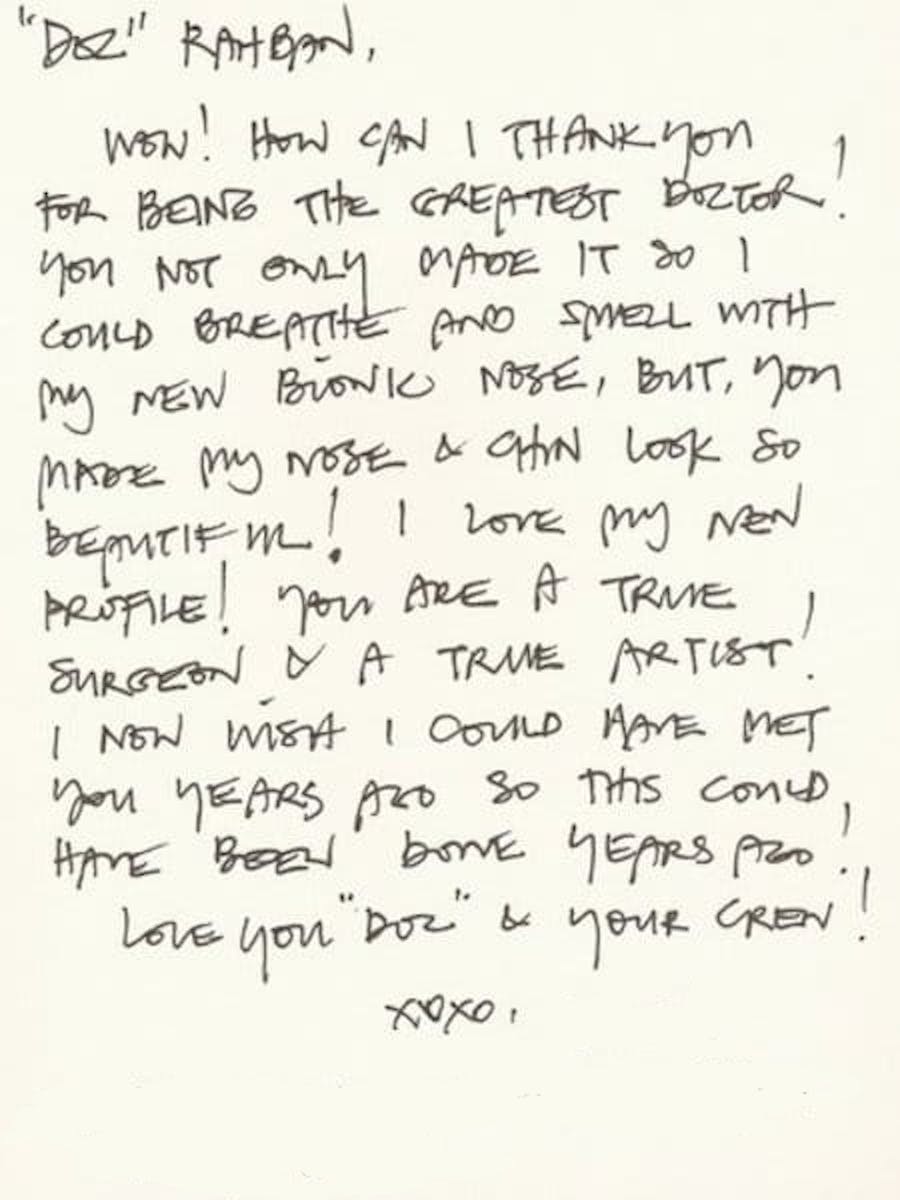 "DOC" RAHBAN,
WOW! HOW CAN I THANK YOU
FOR BEING THE GREATEST DOCTOR!
YOU NOT ONLY MADE IT SO I
COULD BREATHE AND SMELL WITH
MY NEW BIONIC NOSE, BUT, YOU
MADE MY NOSE & CHIN LOOK SO
BEAUTIFUL! I LOVE MY NEW
PROFILE! YOU ARE A TRUE
SURGEON & A TRUE ARTIST!
I NOW WISH I COULD HAVE MET
YOU YEARS AGO SO THIS COULD
HAVE BEEN DONE YEARS AGO!
LOVE YOU "DOC" & YOUR CREW!
XOXO.